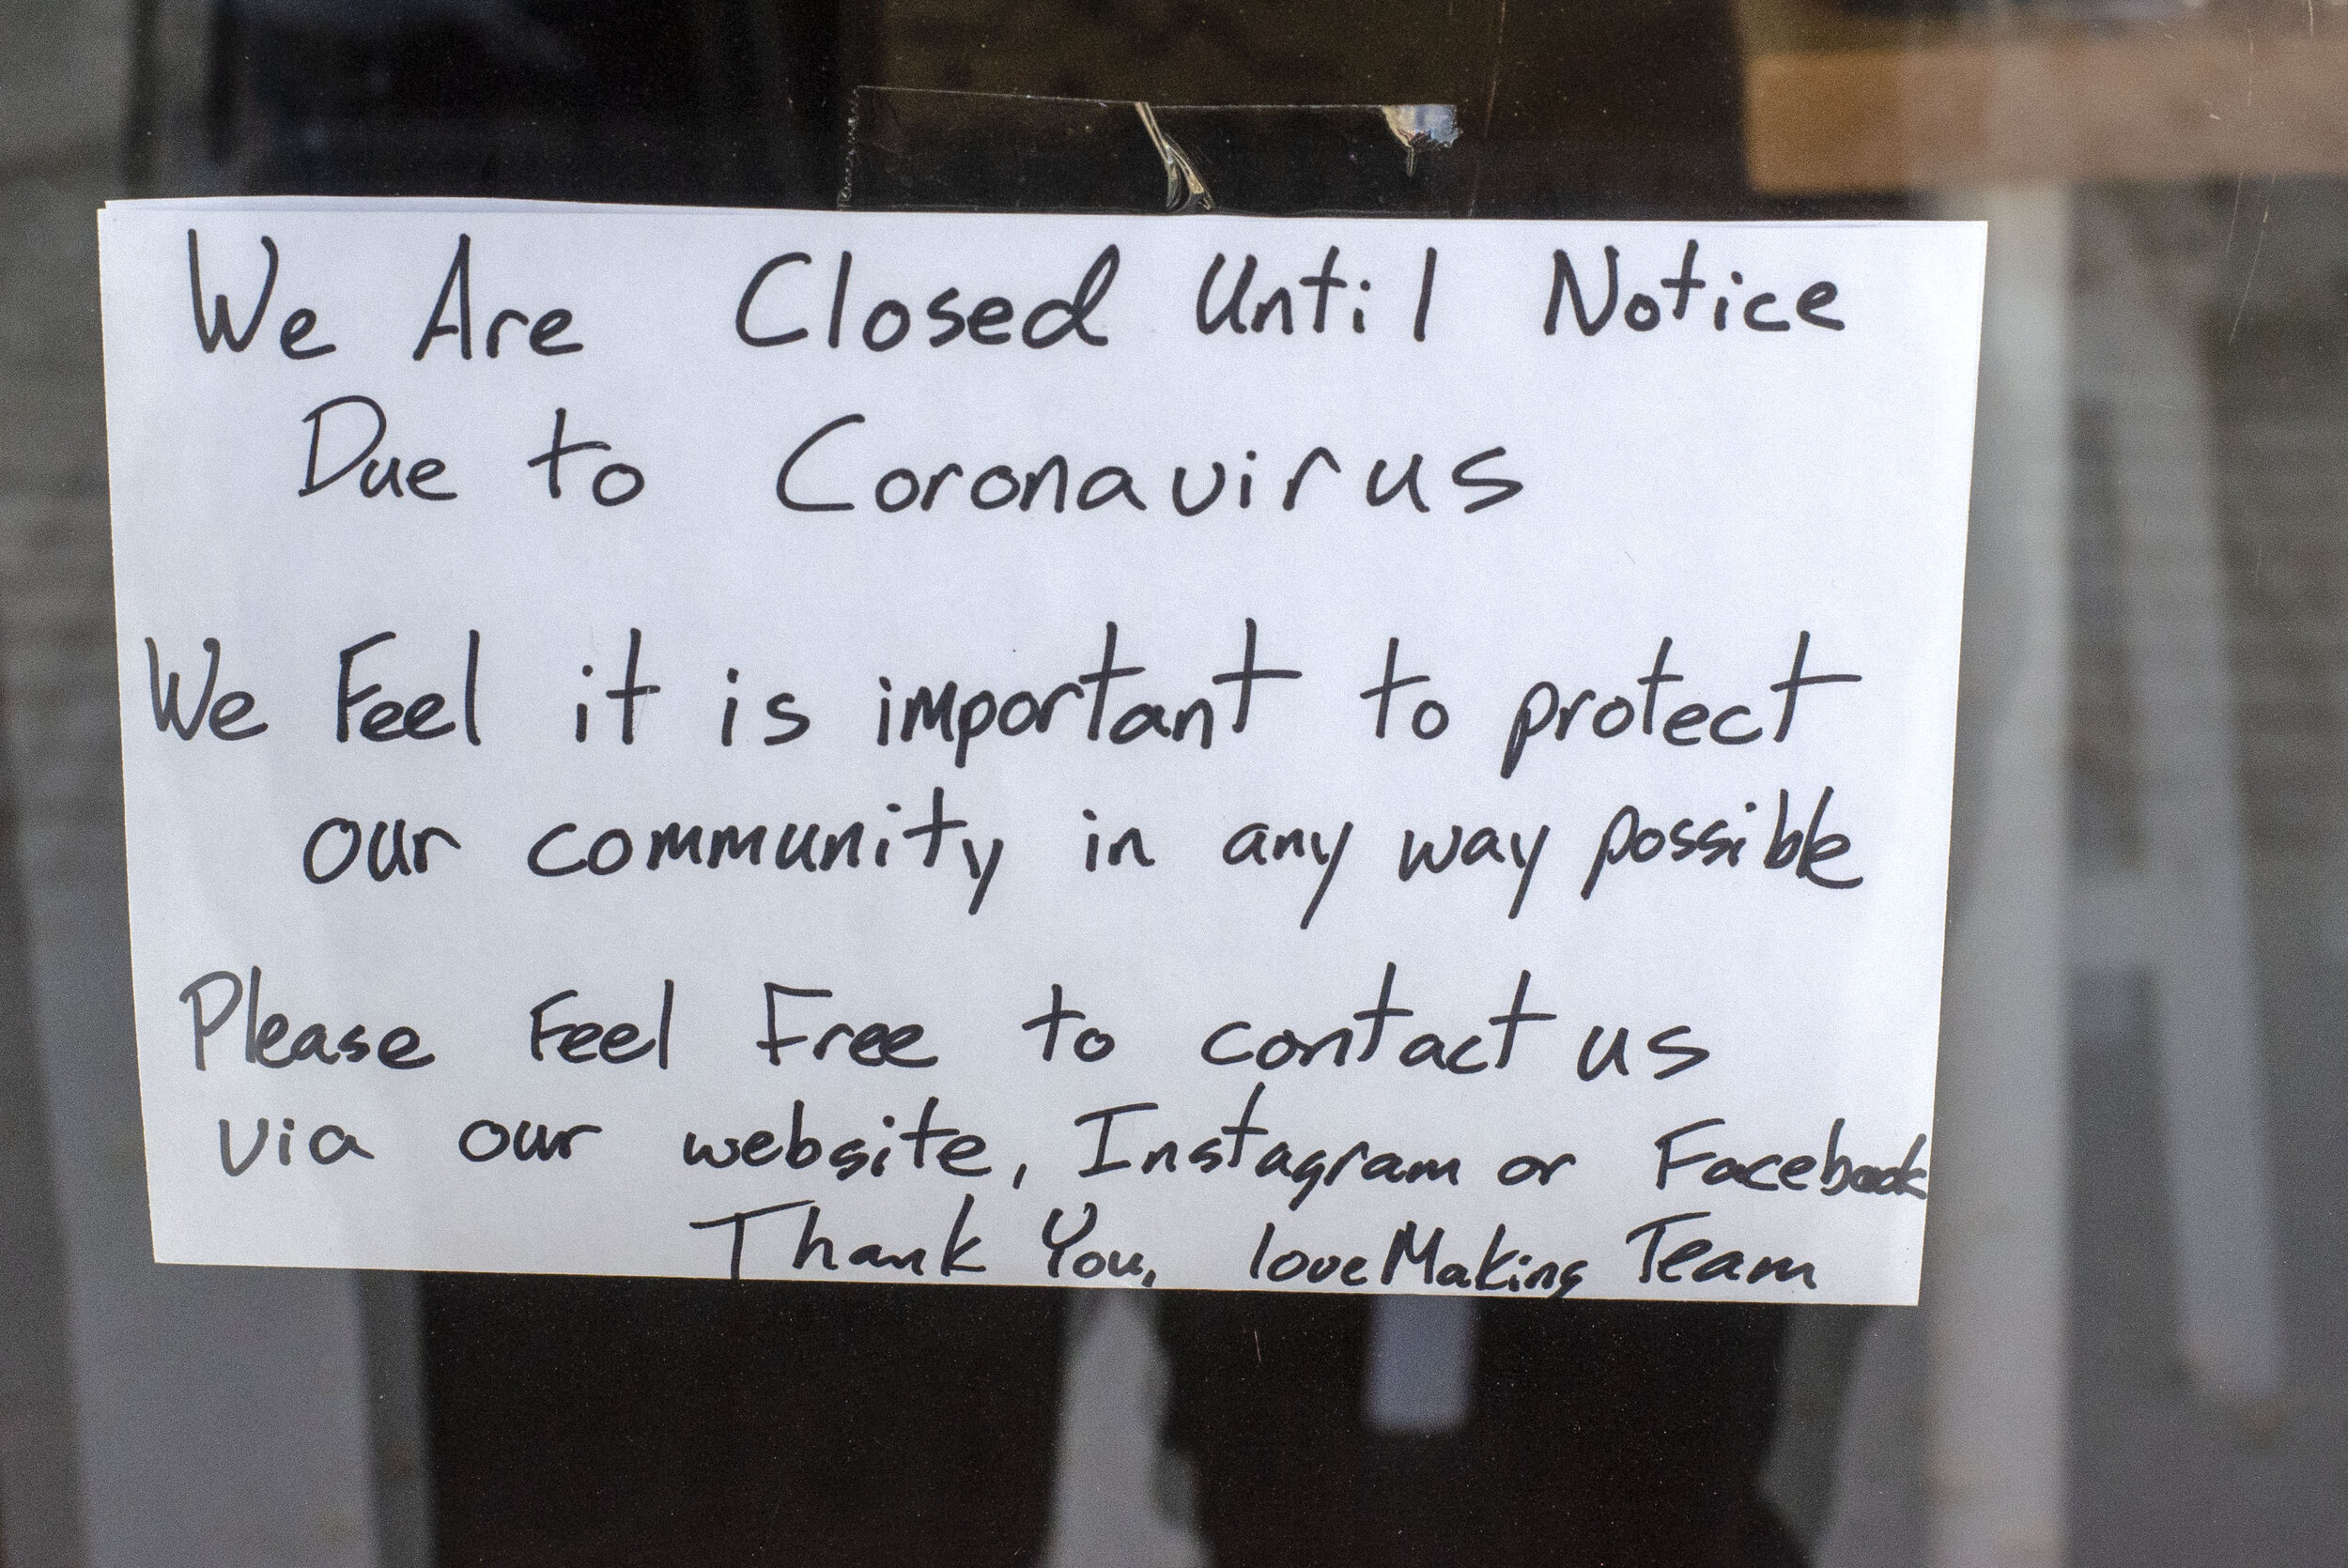 We Are Closed Until Notice
Due to Coronavirus
We Feel it is important to protect
our community in any way possible
Please Feel Free to contact us
via our website, Instagram or Facebook
Thank You, loveMaking Team